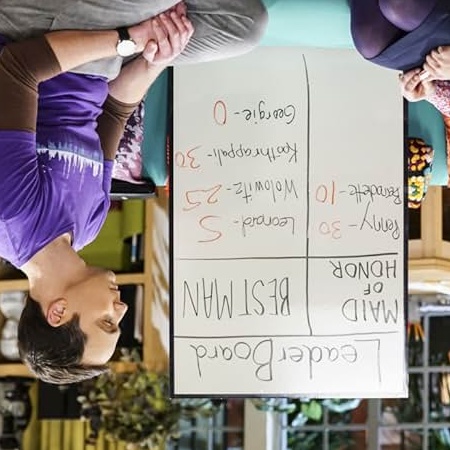 LeaderBoard
MAID
OF
HONOR
Penny-30
Bernadette-10
BEST MAN
Leonard-5
Wolowitz-25
Koothrappali-30
Georgie-0